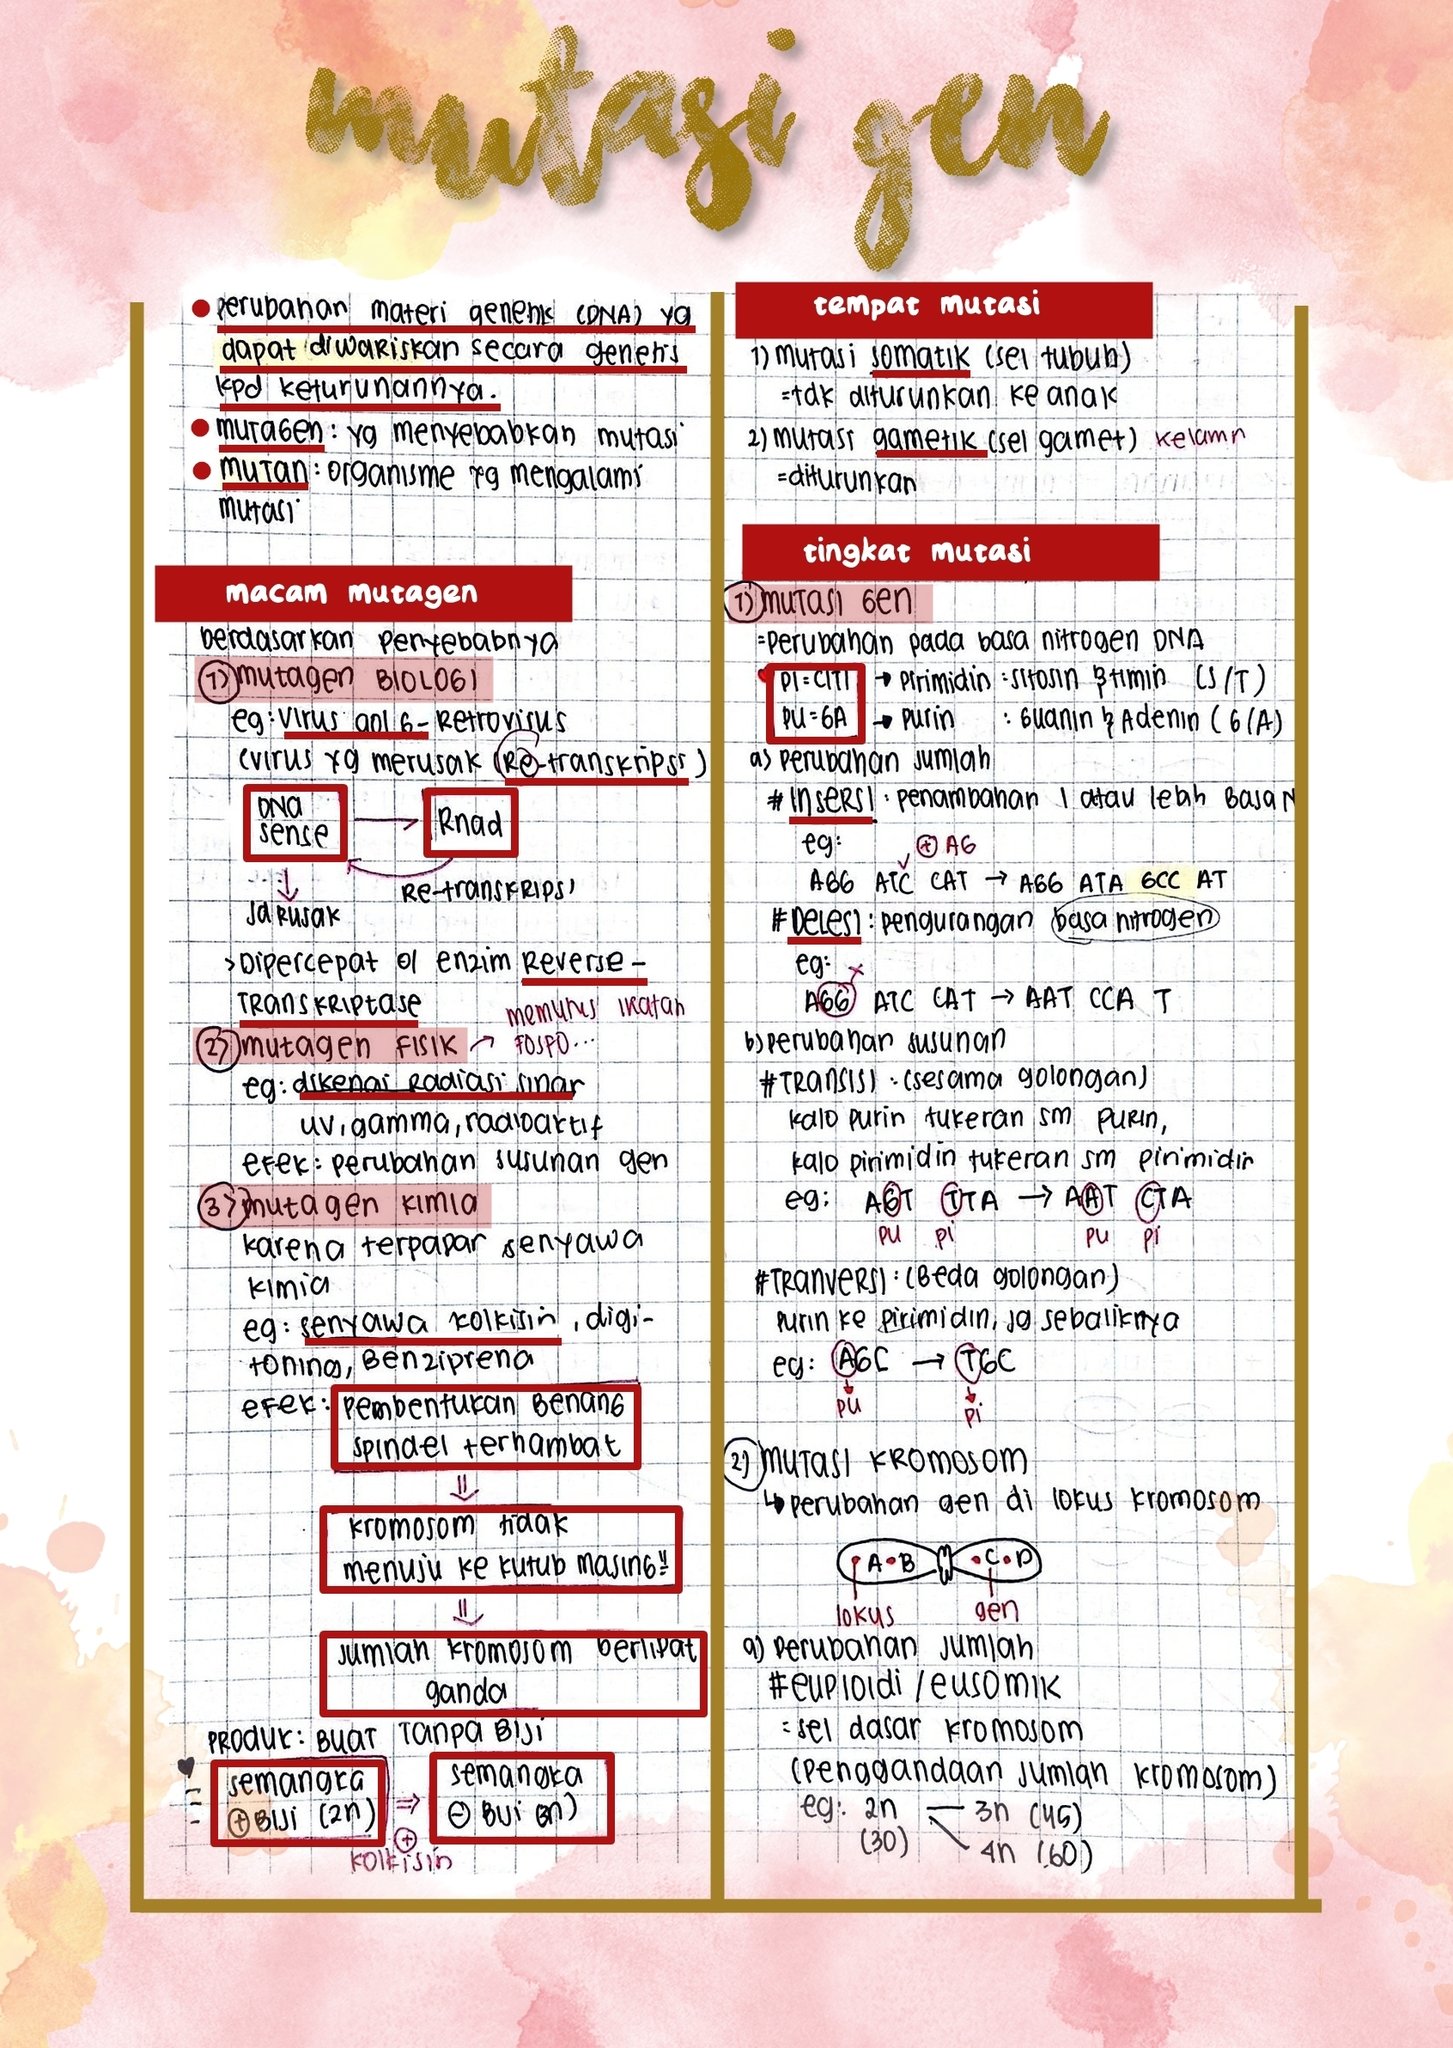 mutasi gen
• perubahan materi genetik (DNA) yg
dapat diwariskan secara genetis
kpd keturunannya.
• mutagen : yg menyebabkan mutasi
• mutan : organisme yg mengalami
mutasi
macam mutagen
berdasarkan penyebabnya
1) mutagen BIOLOGI
eg: virus gol 6 - Retrovirus
(virus yg merusak (Re-transkripsi)
DNA sense → Rnad
Re-transkripsi
jd rusak
> Dipercepat ol enzim Reverse-
TRANSKRIPTASE
2) mutagen FISIK → memutus ikatan
fospo...
eg: dikenai radiasi sinar
uv, gamma, radioaktif
efek : perubahan susunan gen
3) mutagen kimia
karena terpapar senyawa
kimia
eg: senyawa kolkisin, digi-
tonina, Benziprena
efek: pembentukan Benang
spindel terhambat
⇓
kromosom tidak
menuju ke kutub masing"
⇓
jumlah kromosom berlipat
ganda
PRODUK: BUAT TANPA BIJI
semangka ⇒ semangka
⊕ BIJI (2n) ⊖ BIJI (3n)
⊕
kolkisin
tempat mutasi
1) mutasi somatik (sel tubuh)
= tdk diturunkan ke anak
2) mutasi gametik (sel gamet) kelamin
= diturunkan
tingkat mutasi
1) mutasi Gen
= perubahan pada basa nitrogen DNA
PI = CITI → pirimidin : sitosin & timin (S/T)
PU = GA → purin : Guanin & Adenin (G/A)
a) perubahan jumlah
# Insersi : penambahan 1 atau lebih Basa N
eg: ⊕ AG
AGG ATC CAT → AGG ATA GCC AT
# DELESI : pengurangan basa nitrogen
eg: x
AGG ATC CAT → AAT CCA T
b) perubahan susunan
# TRANSISI : (sesama golongan)
kalo purin tukeran sm purin,
kalo pirimidin tukeran sm pirimidin
eg: AGT TTA → AAT CTA
PU PI PU PI
# TRANVERSI : (Beda golongan)
purin ke pirimidin, jg sebaliknya
eg: AGC → TGC
PU PI
2) MUTASI KROMOSOM
↳ perubahan gen di lokus kromosom
A B C D
lokus gen
a) perubahan jumlah
# euploidi / eusomik
= sel dasar kromosom
(penggandaan jumlah kromosom)
eg: 2n — 3n (45)
(30) 4n (60)